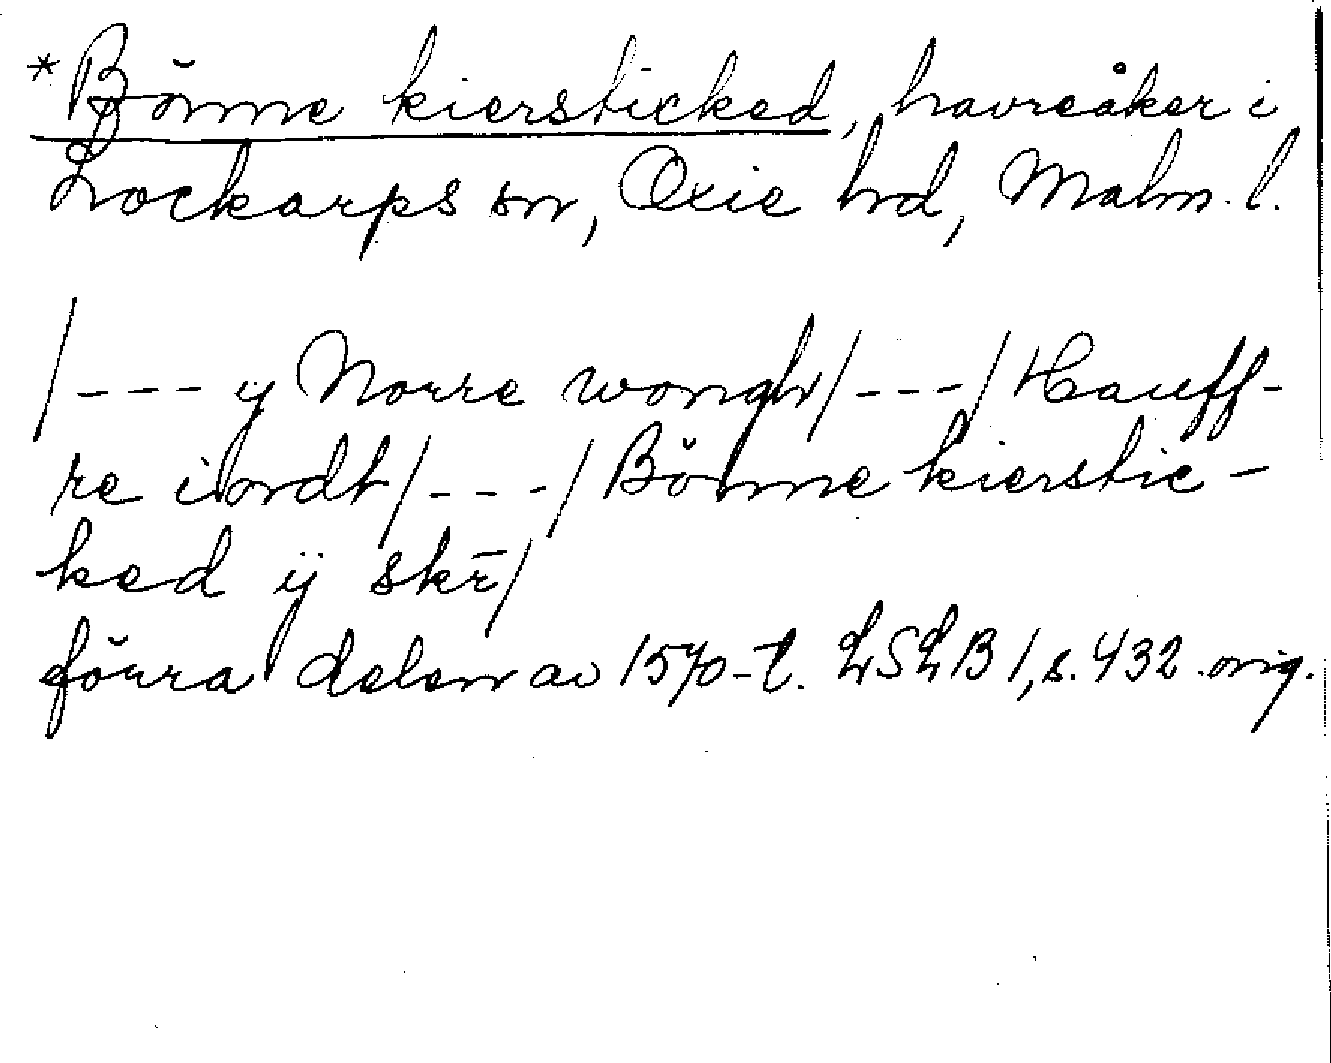 *Bönne kiersticked, havreåker i
Lockarps sn, Oxie hd, Malm. l.
/--- ÿ Norre wongh/---/Hauff-
re iordt/---/Bönne kierstic-
ked ÿ skr̄/
förra delen av 1570-t. LSLB 1, s. 432 orig.